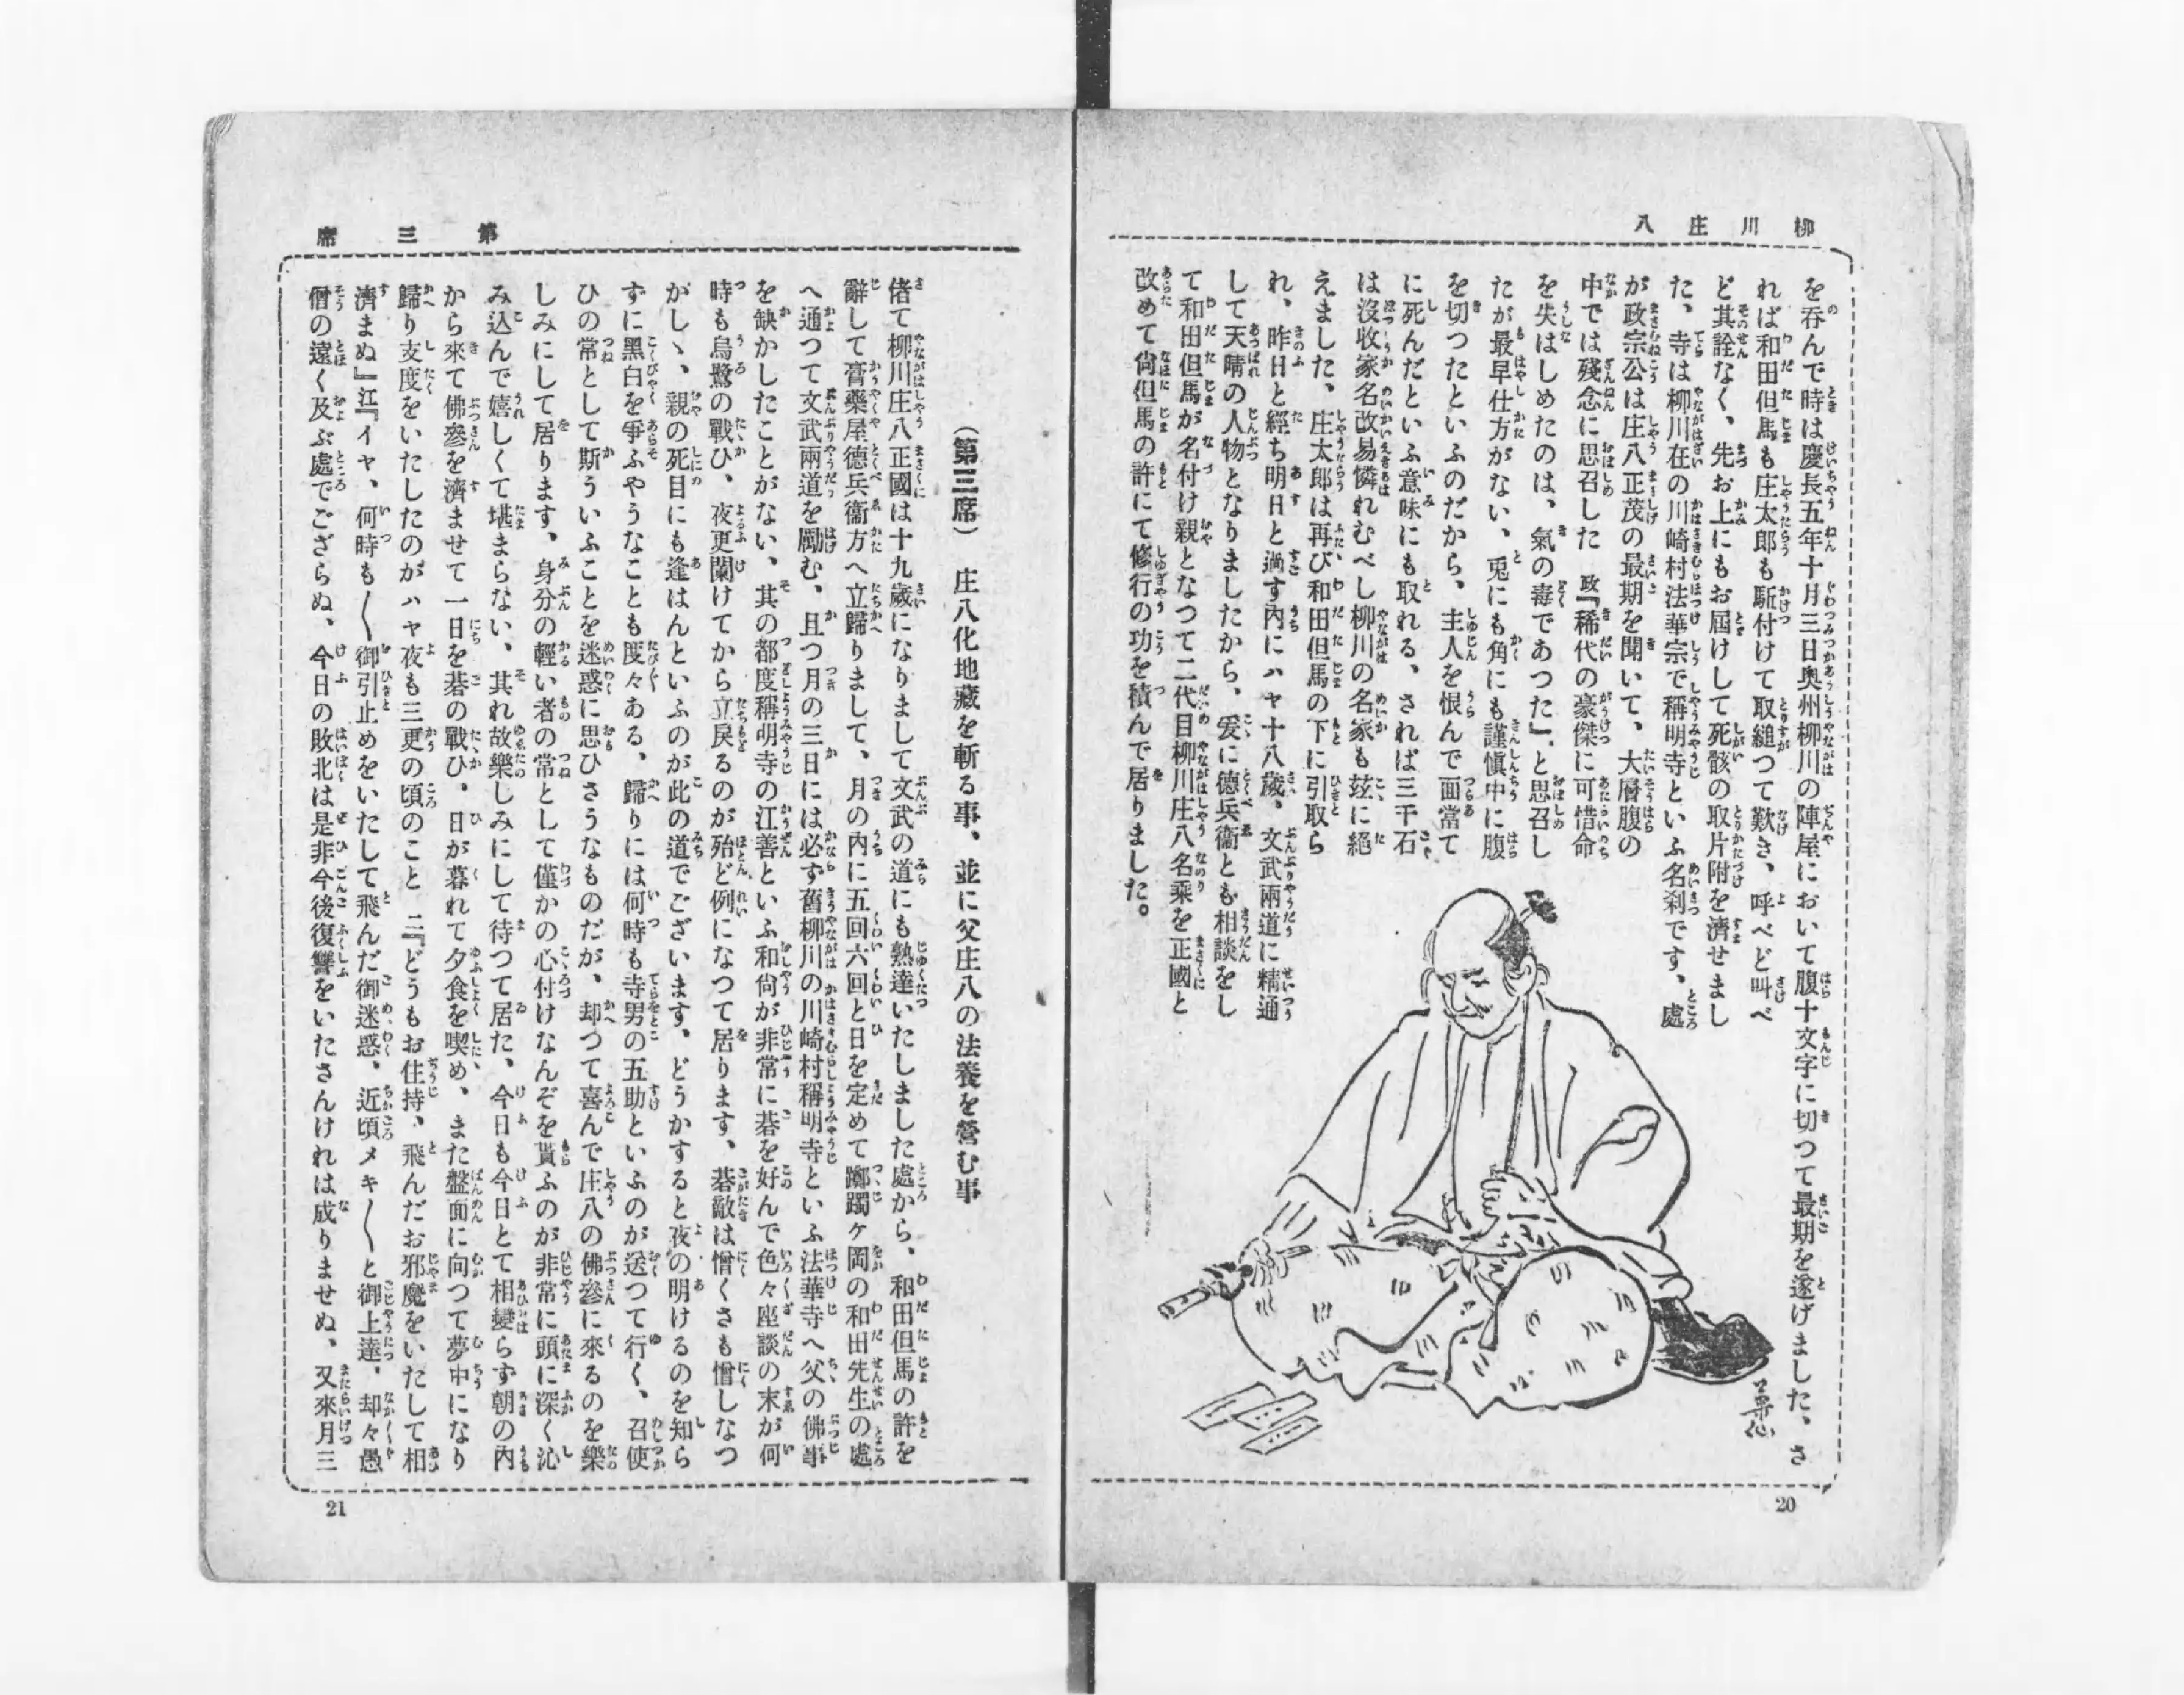 柳川庄八
を呑んで時は慶長五年十月三日奥州柳川の陣屋において腹十文字に切つて最期を遂げました、さ
れば和田但馬も庄太郎も駈付けて取縋つて歎き、呼べど叫べ
ど其詮なく、先お上にもお屆けして死骸の取片附を濟せまし
た、寺は柳川在の川崎村法華宗で稱明寺といふ名刹です、處
が政宗公は庄八正茂の最期を聞いて、大層腹の
中では殘念に思召した　政『稀代の豪傑に可惜命
を失はしめたのは、氣の毒であつた』と思召し
たが最早仕方がない、兎にも角にも謹愼中に腹
を切つたといふのだから、主人を恨んで面當て
に死んだといふ意味にも取れる、されば三千石
は沒收家名改易憐れむべし柳川の名家も玆に絕
えました、庄太郎は再び和田但馬の下に引取ら
れ、昨日と經ち明日と過す內にハヤ十八歲、文武兩道に精通
して天晴の人物となりましたから、爰に德兵衞とも相談をし
て和田但馬が名付け親となつて二代目柳川庄八名乘を正國と
改めて尙但馬の許にて修行の功を積んで居りました。
20
第三席
（第三席）　庄八化地藏を斬る事、並に父庄八の法養を營む事
偖て柳川庄八正國は十九歲になりまして文武の道にも熟達いたしました處から、和田但馬の許を
辭して膏藥屋德兵衞方へ立歸りまして、月の內に五回六回と日を定めて躑躅ヶ岡の和田先生の處
へ通つて文武兩道を勵む、且つ月の三日には必ず舊柳川の川崎村稱明寺といふ法華寺へ父の佛事
を缺かしたことがない、其の都度稱明寺の江善といふ和尙が非常に碁を好んで色々座談の末が何
時も烏鷺の戰ひ、夜更闌けてから立戾るのが殆ど例になつて居ります、碁敵は憎くさも憎しなつ
がしゝ、親の死目にも逢はんといふのが此の道でございます、どうかすると夜の明けるのを知ら
ずに黑白を爭ふやうなことも度々ある、歸りには何時も寺男の五助といふのが送つて行く、召使
ひの常として斯ういふことを迷惑に思ひさうなものだが、却つて喜んで庄八の佛參に來るのを樂
しみにして居ります、身分の輕い者の常として僅かの心付けなんぞを貰ふのが非常に頭に深く沁
み込んで嬉しくて堪まらない、其れ故樂しみにして待つて居た、今日も今日とて相變らず朝の內
から來て佛參を濟ませて一日を碁の戰ひ、日が暮れて夕食を喫め、また盤面に向つて夢中になり
歸り支度をいたしたのがハヤ夜も三更の頃のこと　二『どうもお住持、飛んだお邪魔をいたして相
濟まぬ』江『イヤ、何時も〳〵御引止めをいたして飛んだ御迷惑、近頃メキ〳〵と御上達、却々愚
僧の遠く及ぶ處でござらぬ、今日の敗北は是非今後復讐をいたさんければ成りませぬ、又來月三
21